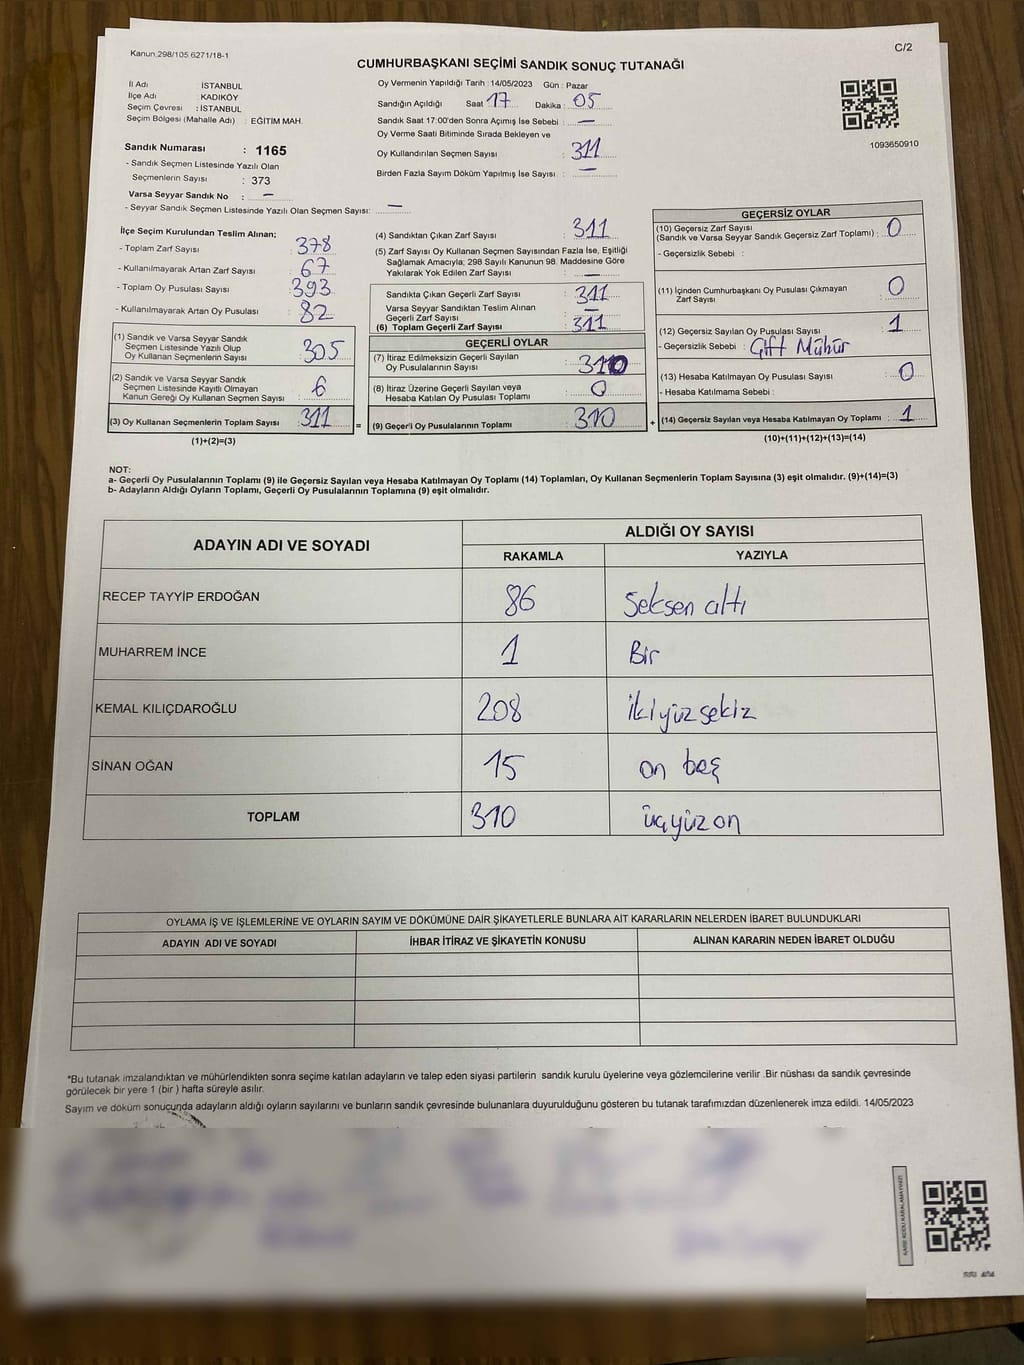 Kanun.298/105.6271/18-1
C/2
CUMHURBAŞKANI SEÇİMİ SANDIK SONUÇ TUTANAĞI
İl Adı İSTANBUL
İlçe Adı KADIKÖY
Seçim Çevresi : İSTANBUL
Seçim Bölgesi (Mahalle Adı) : EĞİTİM MAH.
Oy Vermenin Yapıldığı Tarih : 14/05/2023 Gün : Pazar
Sandığın Açıldığı Saat 17 Dakika : 05
Sandık Saat 17:00'den Sonra Açımış İse Sebebi : —
Oy Verme Saati Bitiminde Sırada Bekleyen ve
Oy Kullandırılan Seçmen Sayısı : 311
Birden Fazla Sayım Döküm Yapılmış İse Sayısı : —
1093650910
Sandık Numarası : 1165
- Sandık Seçmen Listesinde Yazılı Olan
Seçmenlerin Sayısı : 373
Varsa Seyyar Sandık No : —
- Seyyar Sandık Seçmen Listesinde Yazılı Olan Seçmen Sayısı: —
İlçe Seçim Kurulundan Teslim Alınan;
- Toplam Zarf Sayısı : 378
- Kullanılmayarak Artan Zarf Sayısı : 67
- Toplam Oy Pusulası Sayısı : 393
- Kullanılmayarak Artan Oy Pusulası : 82
(1) Sandık ve Varsa Seyyar Sandık
Seçmen Listesinde Yazılı Olup
Oy Kullanan Seçmenlerin Sayısı : 305
(2) Sandık ve Varsa Seyyar Sandık
Seçmen Listesinde Kayıtlı Olmayan
Kanun Gereği Oy Kullanan Seçmen Sayısı : 6
(3) Oy Kullanan Seçmenlerin Toplam Sayısı : 311
(1)+(2)=(3)
(4) Sandıktan Çıkan Zarf Sayısı : 311
(5) Zarf Sayısı Oy Kullanan Seçmen Sayısından Fazla İse, Eşitliği
Sağlamak Amacıyla; 298 Sayılı Kanunun 98. Maddesine Göre
Yakılarak Yok Edilen Zarf Sayısı : —
Sandıkta Çıkan Geçerli Zarf Sayısı : 311
Varsa Seyyar Sandıktan Teslim Alınan
Geçerli Zarf Sayısı : —
(6) Toplam Geçerli Zarf Sayısı : 311
GEÇERLİ OYLAR
(7) İtiraz Edilmeksizin Geçerli Sayılan
Oy Pusulalarının Sayısı : 310
(8) İtiraz Üzerine Geçerli Sayılan veya
Hesaba Katılan Oy Pusulası Toplamı : 0
= (9) Geçerli Oy Pusulalarının Toplamı : 310
GEÇERSİZ OYLAR
(10) Geçersiz Zarf Sayısı
(Sandık ve Varsa Seyyar Sandık Geçersiz Zarf Toplamı) : 0
- Geçersizlik Sebebi :
(11) İçinden Cumhurbaşkanı Oy Pusulası Çıkmayan
Zarf Sayısı : 0
(12) Geçersiz Sayılan Oy Pusulası Sayısı : 1
- Geçersizlik Sebebi : Çift Mühür
(13) Hesaba Katılmayan Oy Pusulası Sayısı : 0
- Hesaba Katılmama Sebebi :
+ (14) Geçersiz Sayılan veya Hesaba Katılmayan Oy Toplamı : 1
(10)+(11)+(12)+(13)=(14)
NOT:
a- Geçerli Oy Pusulalarının Toplamı (9) ile Geçersiz Sayılan veya Hesaba Katılmayan Oy Toplamı (14) Toplamları, Oy Kullanan Seçmenlerin Toplam Sayısına (3) eşit olmalıdır. (9)+(14)=(3)
b- Adayların Aldığı Oyların Toplamı, Geçerli Oy Pusulalarının Toplamına (9) eşit olmalıdır.
ADAYIN ADI VE SOYADI
ALDIĞI OY SAYISI
RAKAMLA YAZIYLA
RECEP TAYYİP ERDOĞAN 86 Seksen altı
MUHARREM İNCE 1 Bir
KEMAL KILIÇDAROĞLU 208 İkiyüzsekiz
SİNAN OĞAN 15 on beş
TOPLAM 310 üçyüz on
OYLAMA İŞ VE İŞLEMLERİNE VE OYLARIN SAYIM VE DÖKÜMÜNE DAİR ŞİKAYETLERLE BUNLARA AİT KARARLARIN NELERDEN İBARET BULUNDUKLARI
ADAYIN ADI VE SOYADI İHBAR İTİRAZ VE ŞİKAYETİN KONUSU ALINAN KARARIN NEDEN İBARET OLDUĞU
*Bu tutanak imzalandıktan ve mühürlendikten sonra seçime katılan adayların ve talep eden siyasi partilerin sandık kurulu üyelerine veya gözlemcilerine verilir .Bir nüshası da sandık çevresinde
görülecek bir yere 1 (bir ) hafta süreyle asılır.
Sayım ve döküm sonucunda adayların aldığı oyların sayılarını ve bunların sandık çevresinde bulunanlara duyurulduğunu gösteren bu tutanak tarafımızdan düzenlenerek imza edildi. 14/05/2023
KARE KODU KARALAMAYINIZ!